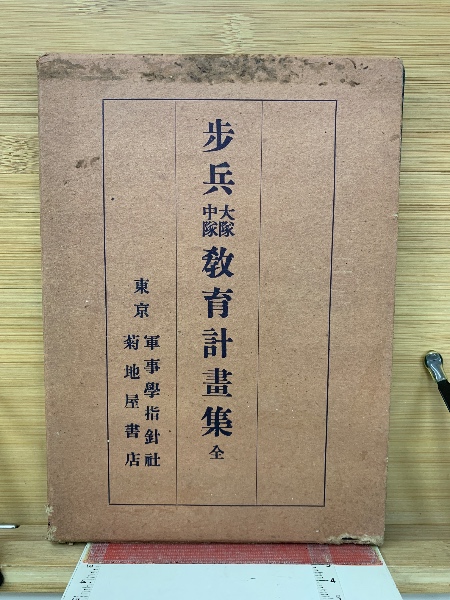 歩兵大隊中隊教育計畫集全
東京
軍事學指針社
菊地屋書店